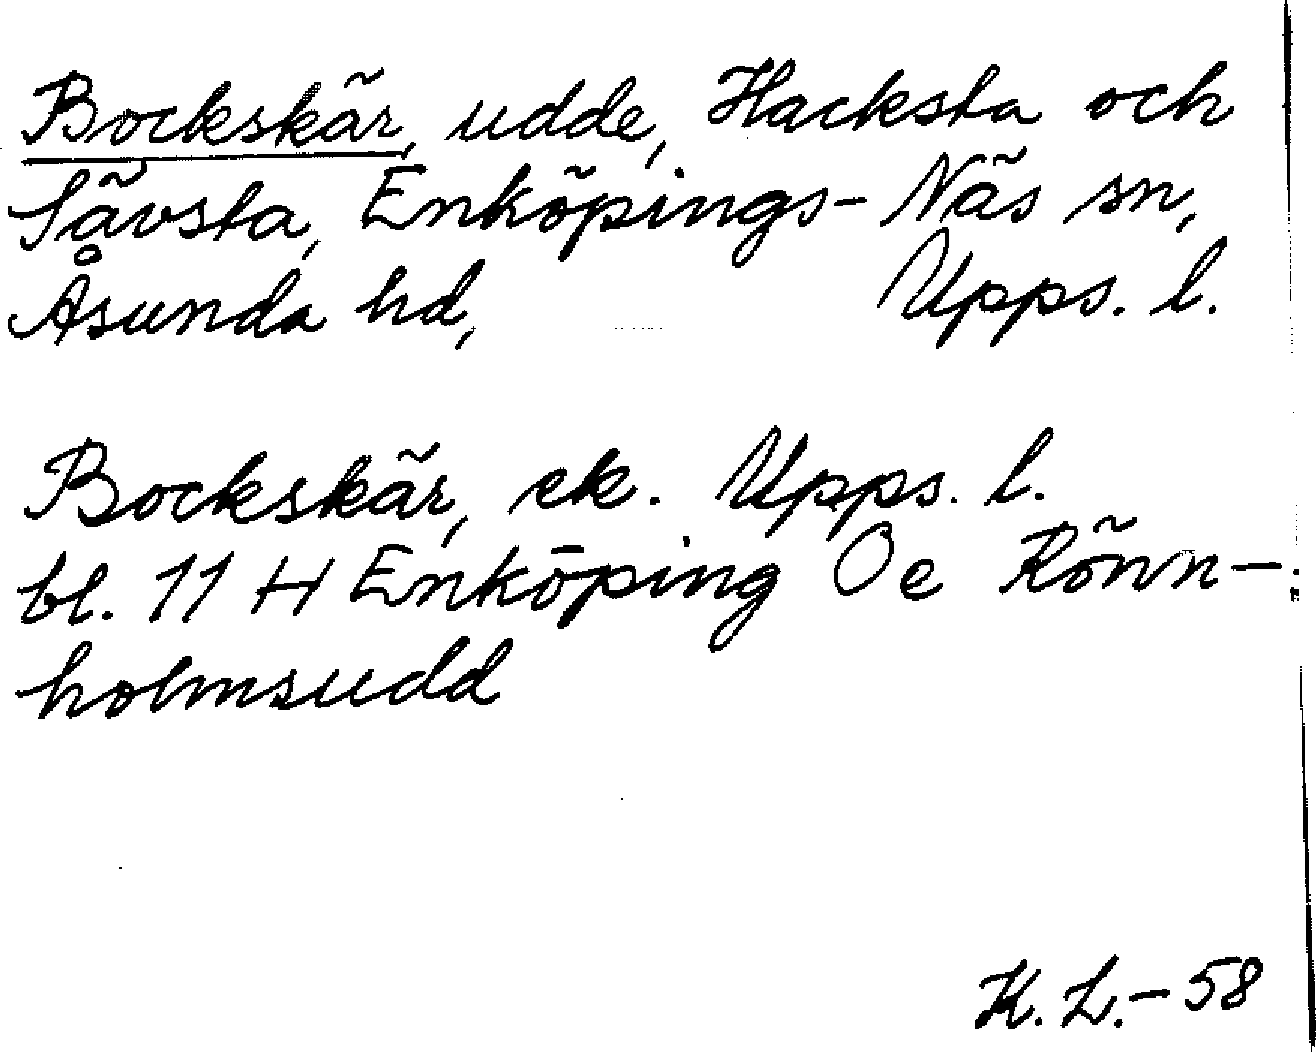 Bockskär, udde, Hacksta och
Sävsta, Enköpings-Näs sn,
Åsunda hd, Upps. l.
Bockskär, ek. Upps. l.
bl. 11 H Enköping Oe Rönn-
holmsudd
K. L. - 58